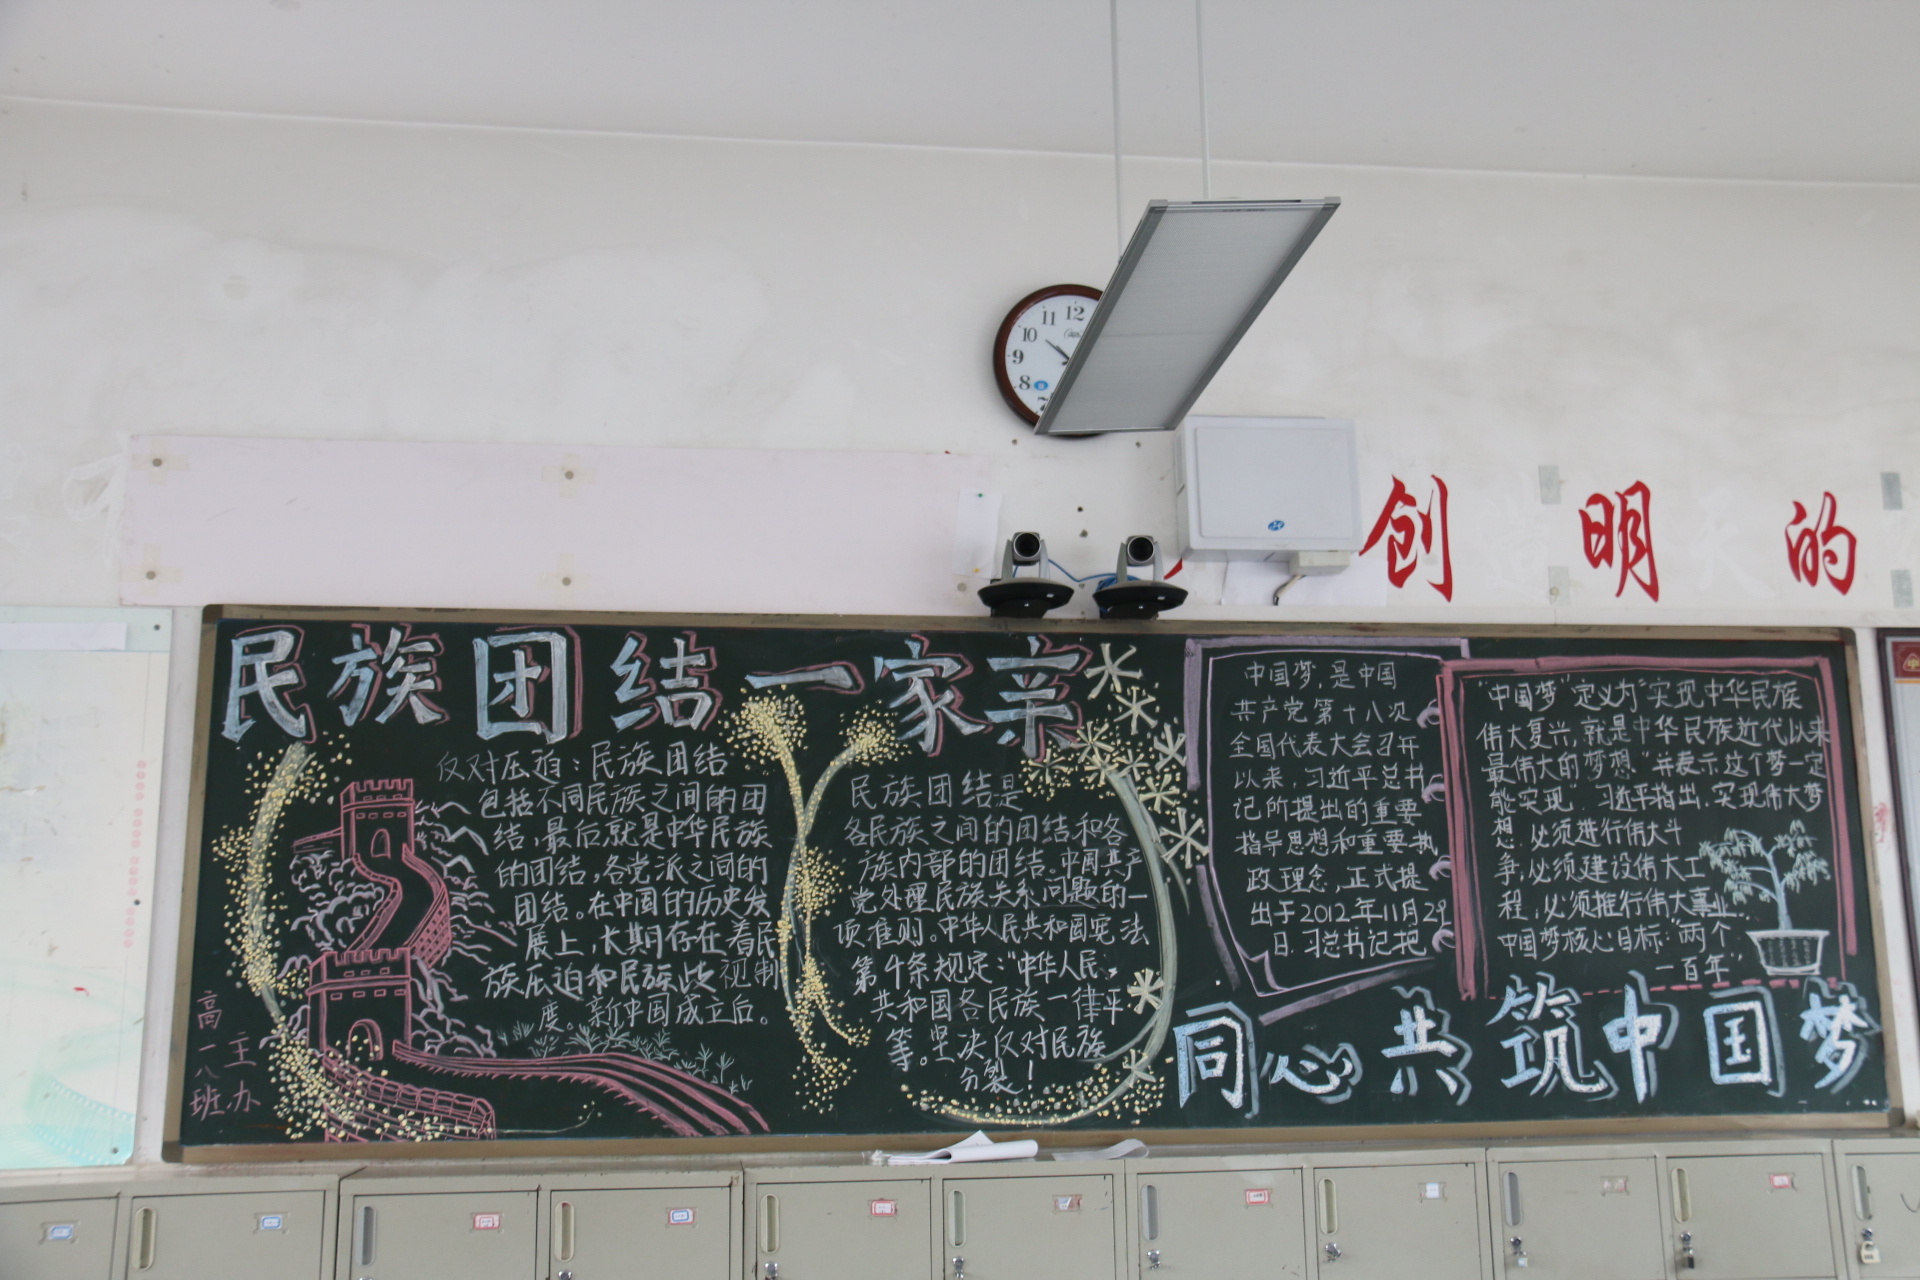 11 12
10
9
8
7
创 明 的
民族团结一家亲
反对压迫：民族团结
包括不同民族之间的团
结，最后就是中华民族
的团结，各党派之间的
团结。在中国的历史发
展上，长期存在着民
族压迫和民族歧视制
度。新中国成立后。
高一八班
主办
民族团结是
各民族之间的团结和各
族内部的团结。中国共产
党处理民族关系问题的一
项准则。中华人民共和国宪法
第4条规定："中华人民
共和国各民族一律平
等。坚决反对民族
分裂！
中国梦，是中国
共产党第十八次
全国代表大会召开
以来，习近平总书
记所提出的重要
指导思想和重要执
政理念，正式提
出于2012年11月29
日.习总书记把
"中国梦"定义为"实现中华民族
伟大复兴，就是中华民族近代以来
最伟大的梦想"并表示这个梦一定
能实现"习近平指出，实现伟大梦
想.必须进行伟大斗
争，必须建设伟大工
程，必须推行伟大事业.
中国梦核心目标："两个
一百年"
同心共筑中国梦